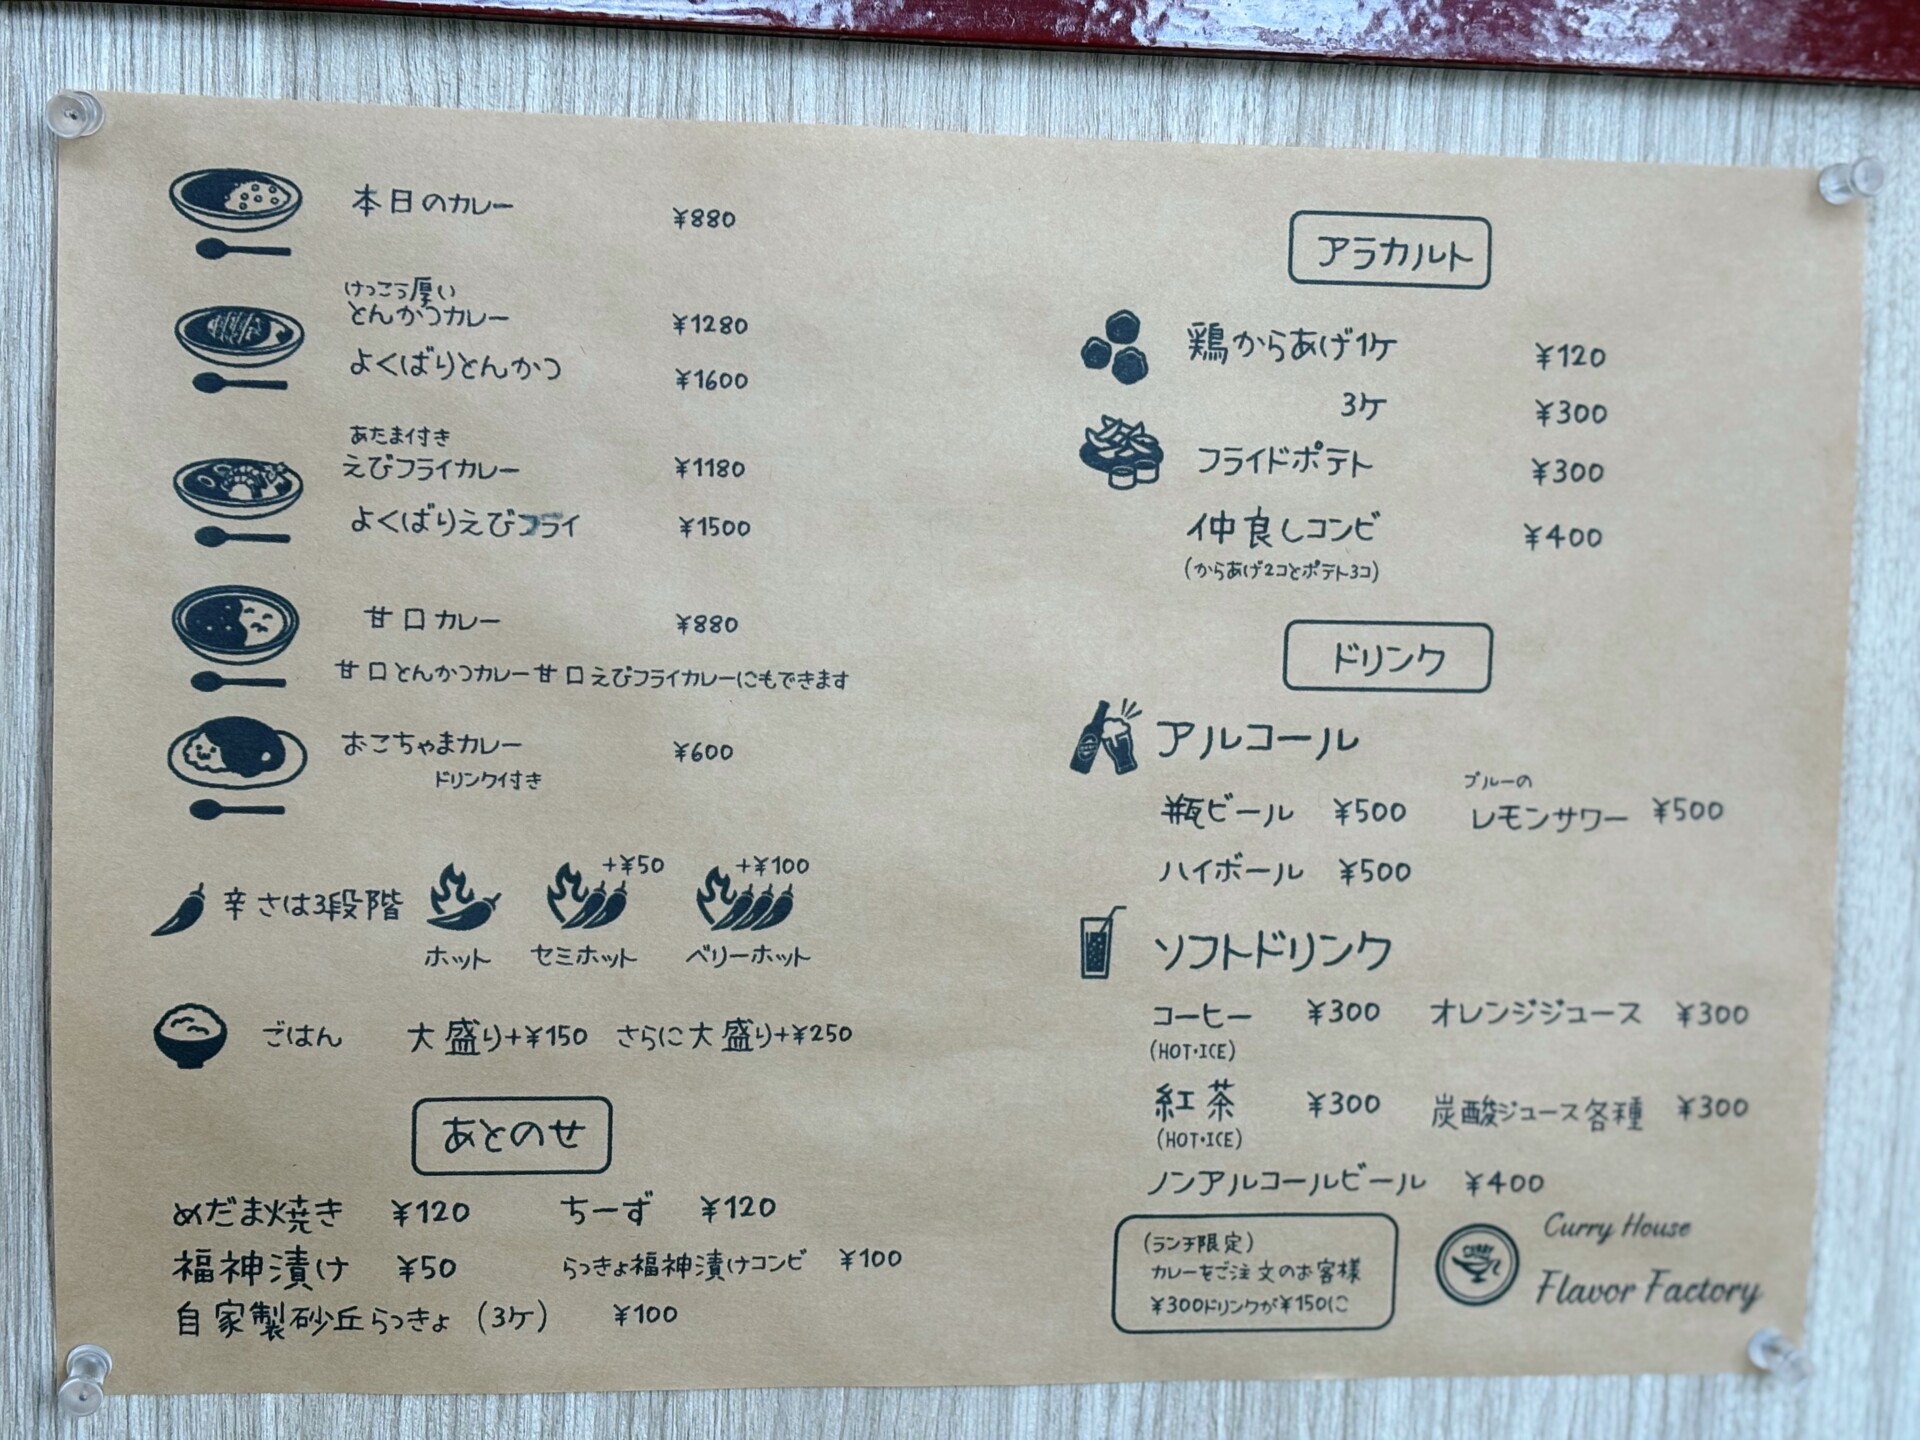 本日のカレー ¥880
けっこう厚い
とんかつカレー ¥1280
よくばりとんかつ ¥1600
あたま付き
えびフライカレー ¥1180
よくばりえびフライ ¥1500
甘口カレー ¥880
甘口とんかつカレー甘口えびフライカレーにもできます
おこちゃまカレー ¥600
ドリンク付き
+¥50 +¥100
辛さは3段階
ホット セミホット ベリーホット
ごはん 大盛り+¥150 さらに大盛り+¥250
あとのせ
めだま焼き ¥120 ちーず ¥120
福神漬け ¥50 らっきょ福神漬けコンビ ¥100
自家製砂丘らっきょ (3ケ) ¥100
アラカルト
鶏からあげ1ケ ¥120
3ケ ¥300
フライドポテト ¥300
仲良しコンビ ¥400
(からあげ2コとポテト3コ)
ドリンク
アルコール
ブルーの
瓶ビール ¥500 レモンサワー ¥500
ハイボール ¥500
ソフトドリンク
コーヒー ¥300 オレンジジュース ¥300
(HOT・ICE)
紅茶 ¥300 炭酸ジュース各種 ¥300
(HOT・ICE)
ノンアルコールビール ¥400
(ランチ限定)
カレーをご注文のお客様
¥300ドリンクが¥150に
CURRY
Curry House
Flavor Factory